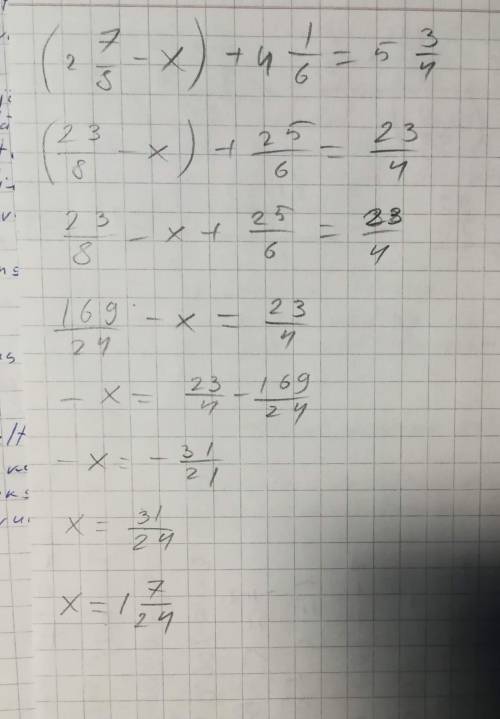 (2 7/8 - x) + 4 1/6 = 5 3/4
(23/8 - x) + 25/6 = 23/4
23/8 - x + 25/6 = 23/4
169/24 - x = 23/4
- x = 23/4 - 169/24
- x = - 31/21
x = 31/24
x = 1 7/24